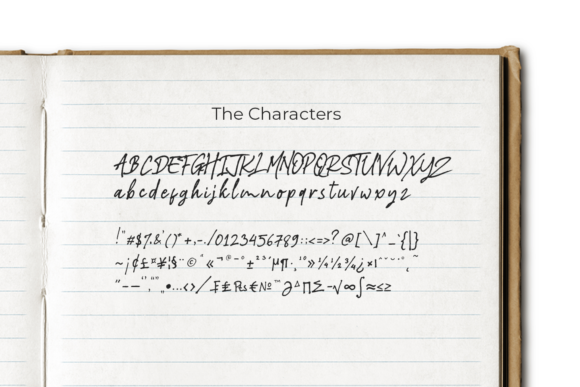 The Characters
ABCDEFGHIJKLMNOPQRSTUVWXYZ
abcdefghijklmnopqrstuvwxyz
!"#$%&'()*+,-./0123456789:;<=>?@[\]^_`{|}
~¡¢£¤¥¦§¨©ª«¬®¯°±²³´µ¶·¸¹º»¼½¾¿×ˆˇ˘˙˚˛˜
˝–—‘’‚“”„•…‹›⁄₣₤₧€№™∂∆∏∑−√∞∫≈≤≥